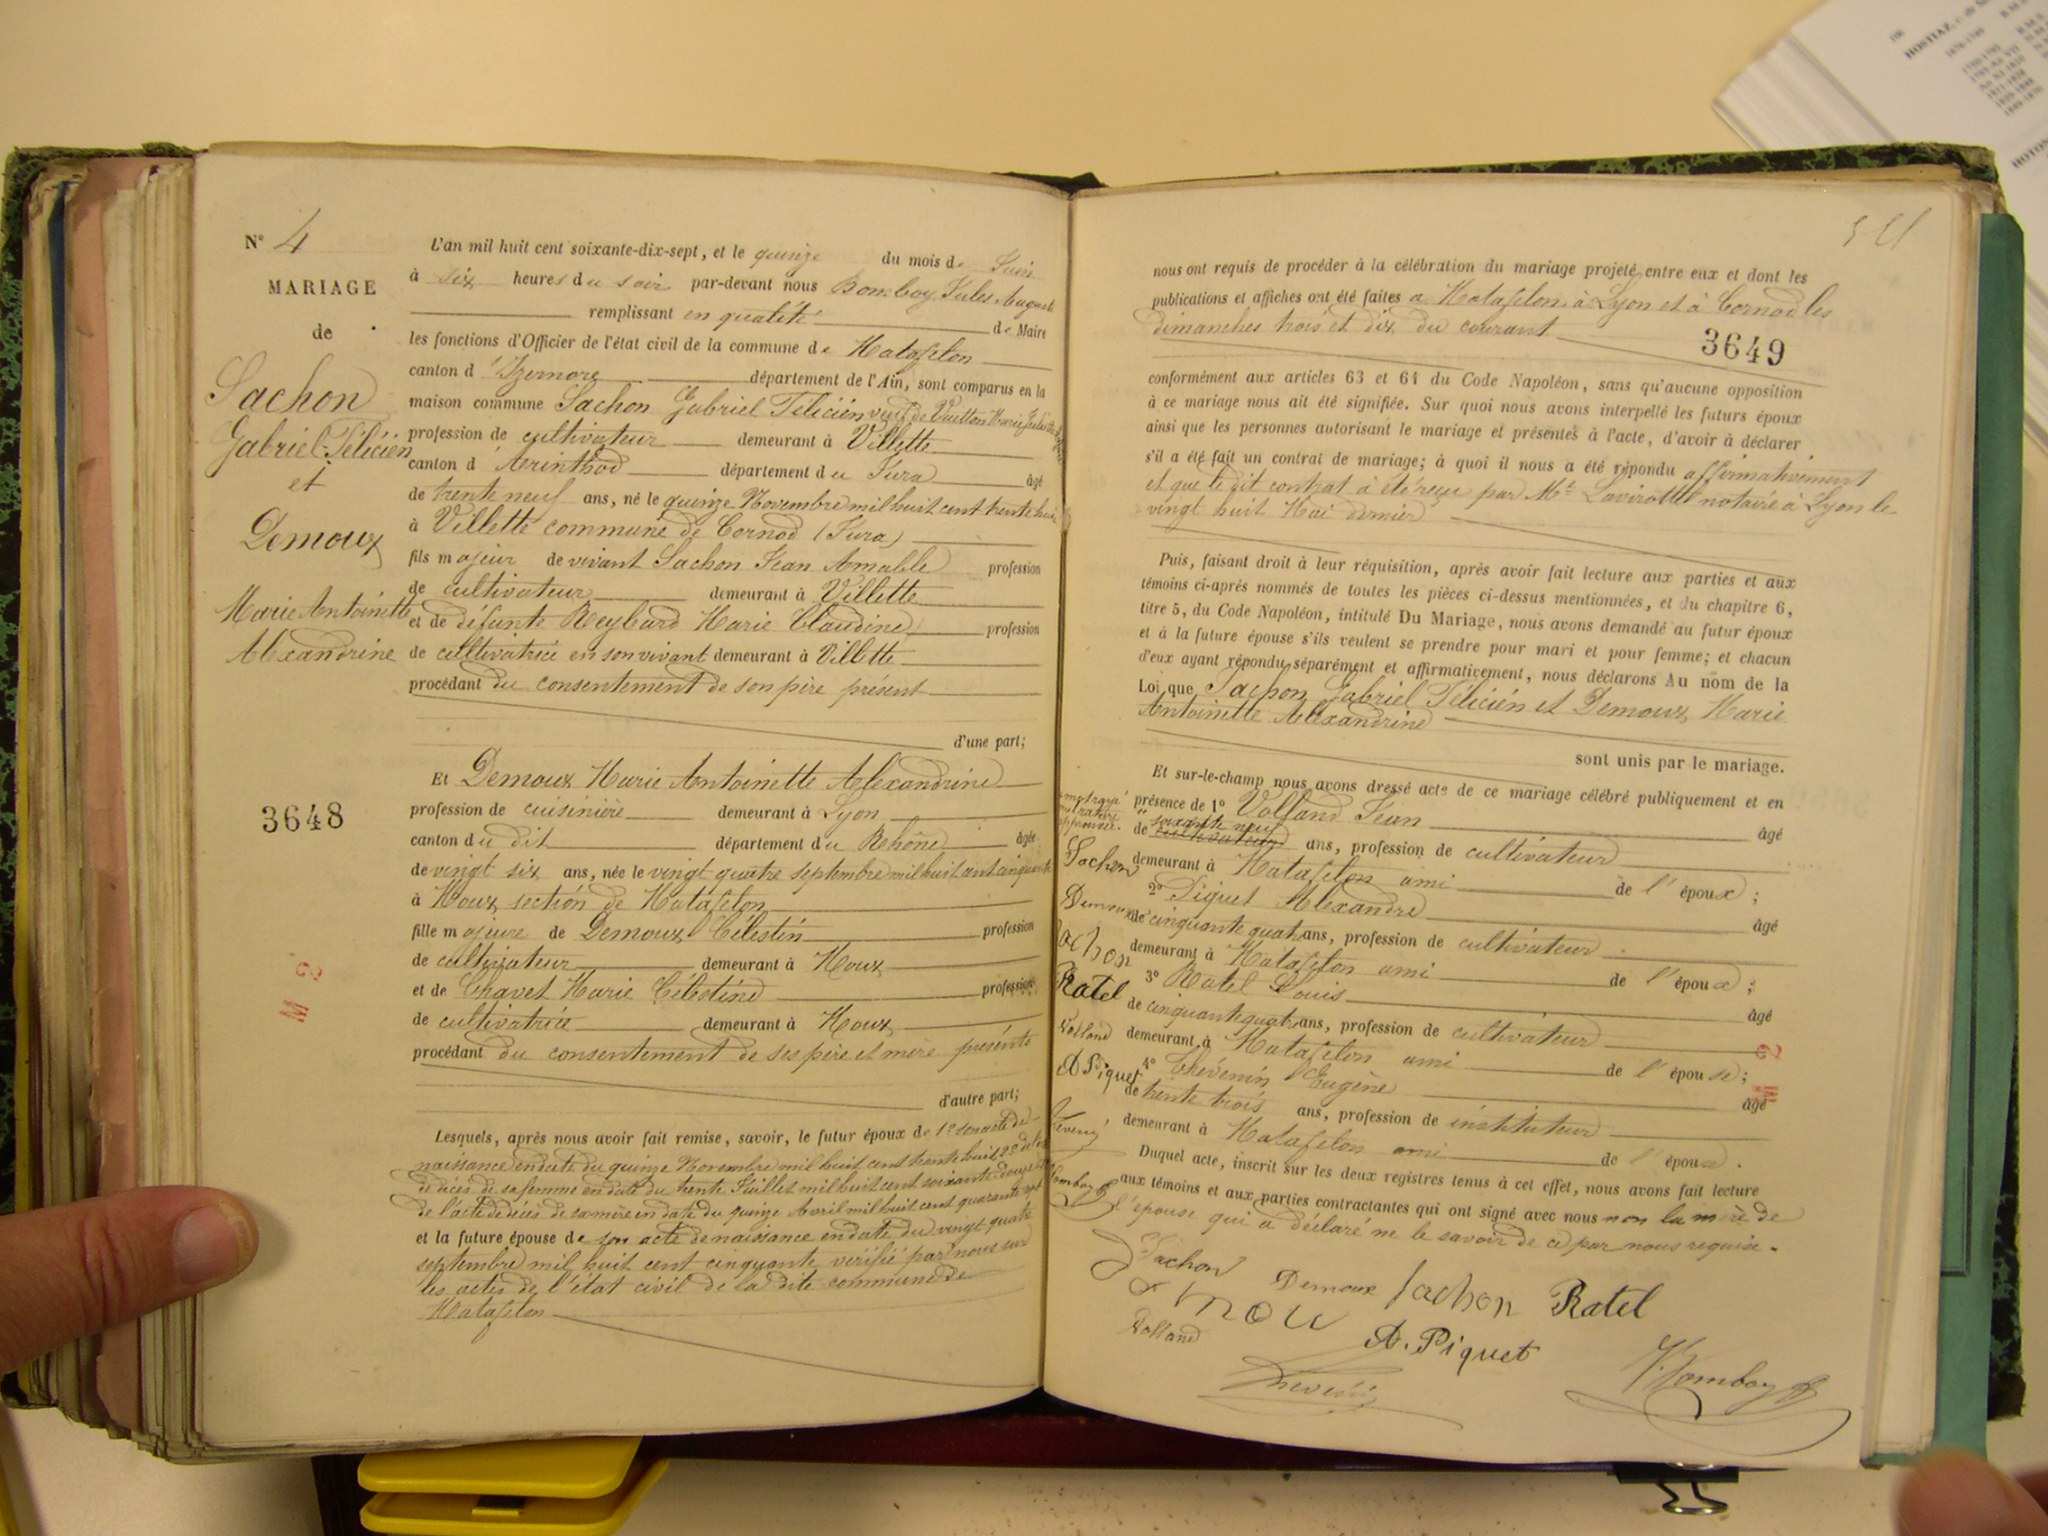 N° 4
MARIAGE
de
Sachon
Gabriel Félicien
et
Demoux
Marie Antoinette
Alexandrine
3648
L'an mil huit cent soixante-dix-sept, et le quinze du mois de Juin
à six heures du soir par-devant nous Bomboy Jules Auguste
remplissant en qualité de Maire
les fonctions d'Officier de l'état civil de la commune de Matafelon
canton d'Izernore département de l'Ain, sont comparus en la
maison commune Sachon Gabriel Félicien veuf de Vuitton Marie
profession de cultivateur demeurant à Villette
canton d'Arinthod département du Jura âgé
de trente neuf ans, né le quinze Novembre mil huit cent trente huit
à Villette commune de Cornod (Jura)
fils majeur de vivant Sachon Jean Amable profession
de cultivateur demeurant à Villette
et de défunte Reybard Marie Claudine profession
de cultivatrice en son vivant demeurant à Villette
procédant du consentement de son père présent
d'une part;
Et Demoux Marie Antoinette Alexandrine
profession de cuisinière demeurant à Lyon
canton du dit département du Rhône âgée
de vingt six ans, née le vingt quatre septembre mil huit cent cinquante
à Moux section de Matafelon
fille majeure de Demoux Célestin profession
de cultivateur demeurant à Moux
et de Chavet Marie Célestine profession
de cultivatrice demeurant à Moux
procédant du consentement de ses père et mère présents
d'autre part;
Lesquels, après nous avoir fait remise, savoir, le futur époux de 1° son acte de
naissance en date du quinze Novembre mil huit cent trente huit 2° de l'acte
de décès de sa femme en date du trente Juillet mil huit cent soixante douze
de l'acte de décès de sa mère en date du quinze Avril mil huit cent quarante sept
et la future épouse de son acte de naissance en date du vingt quatre
septembre mil huit cent cinquante vérifié par nous sur
les actes de l'état civil de la dite commune de
Matafelon
nous ont requis de procéder à la célébration du mariage projeté entre eux et dont les
publications et affiches ont été faites à Matafelon à Lyon et à Cornod les
dimanches trois et dix du courant
3649
conformément aux articles 63 et 64 du Code Napoléon, sans qu'aucune opposition
à ce mariage nous ait été signifiée. Sur quoi nous avons interpellé les futurs époux
ainsi que les personnes autorisant le mariage et présentes à l'acte, d'avoir à déclarer
s'il a été fait un contrat de mariage; à quoi il nous a été répondu affirmativement
et que le dit contrat à été reçu par Me Lavirotte notaire à Lyon le
vingt huit Mai dernier
Puis, faisant droit à leur réquisition, après avoir fait lecture aux parties et aux
témoins ci-après nommés de toutes les pièces ci-dessus mentionnées, et du chapitre 6,
titre 5, du Code Napoléon, intitulé Du Mariage, nous avons demandé au futur époux
et à la future épouse s'ils veulent se prendre pour mari et pour femme; et chacun
d'eux ayant répondu séparément et affirmativement, nous déclarons Au nom de la
Loi que Sachon Gabriel Félicien et Demoux Marie
Antoinette Alexandrine
sont unis par le mariage.
Et sur-le-champ nous avons dressé acte de ce mariage célébré publiquement et en
présence de 1° Volland Jean âgé
de soixante neuf cultivateur ans, profession de cultivateur
demeurant à Matafelon ami de l'époux;
2° Piquet Alexandre âgé
de cinquante quatre ans, profession de cultivateur
demeurant à Matafelon ami de l'époux;
3° Ratel Louis âgé
de cinquante quatre ans, profession de cultivateur
demeurant à Matafelon ami de l'épouse;
4° Thévenin Eugène âgé
de trente trois ans, profession de instituteur
demeurant à Matafelon ami de l'époux.
Duquel acte, inscrit sur les deux registres tenus à cet effet, nous avons fait lecture
aux témoins et aux parties contractantes qui ont signé avec nous non la mère de
l'épouse qui a déclaré ne le savoir de ce par nous requise.
Sachon
Demoux
Sachon
Ratel
Volland
A Piquet
Bomboy
Sachon Demoux Sachon Ratel
Volland A. Piquet
Thévenin Bomboy